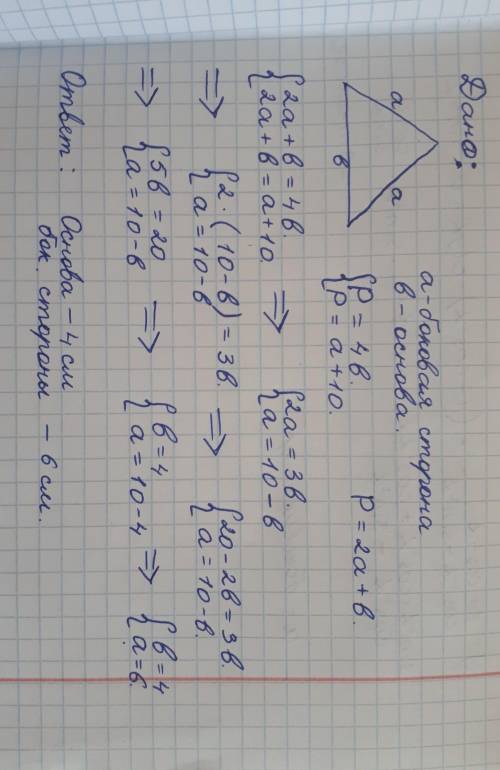 Дано:
a
a
в
a - боковая сторона
в - основа.
{P = 4в.
{P = a + 10.
P = 2a + в.
{2a + в = 4в.
{2a + в = a + 10.
⇒
{2a = 3в.
{a = 10 - в
⇒
{2 · (10 - в) = 3в.
{a = 10 - в
⇒
{20 - 2в = 3в.
{a = 10 - в.
⇒
{5в = 20
{a = 10 - в
⇒
{в = 4
{a = 10 - 4
⇒
{в = 4
{a = 6.
Ответ: Основа - 4 см
бок. стороны - 6 см.